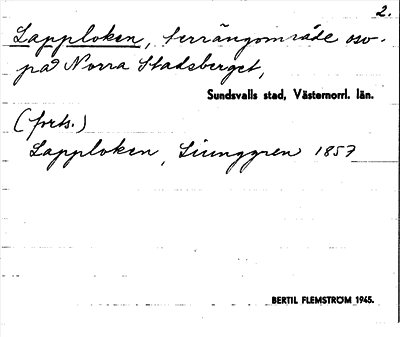 2.
Lapploken, terrängområde oso.
på Norra Stadsberget,
Sundsvalls stad, Västernorrl. län.
(forts.)
Lapploken, Ljunggren 1857
BERTIL FLEMSTRÖM 1945.